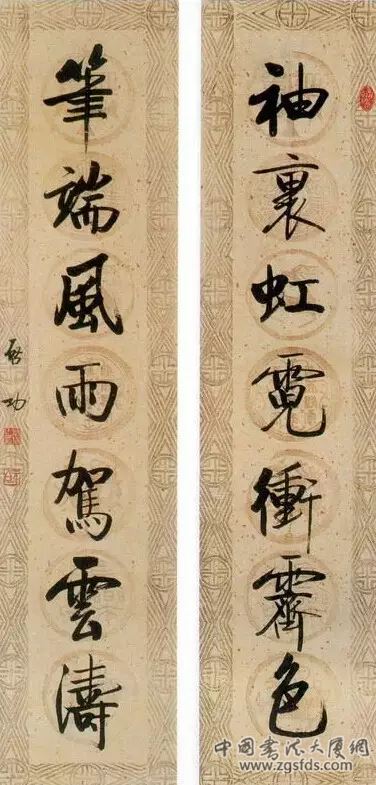 袖裏虹霓衝霽色
筆端風雨駕雲濤
啓功
中国书法大厦網
www.zgsfds.com